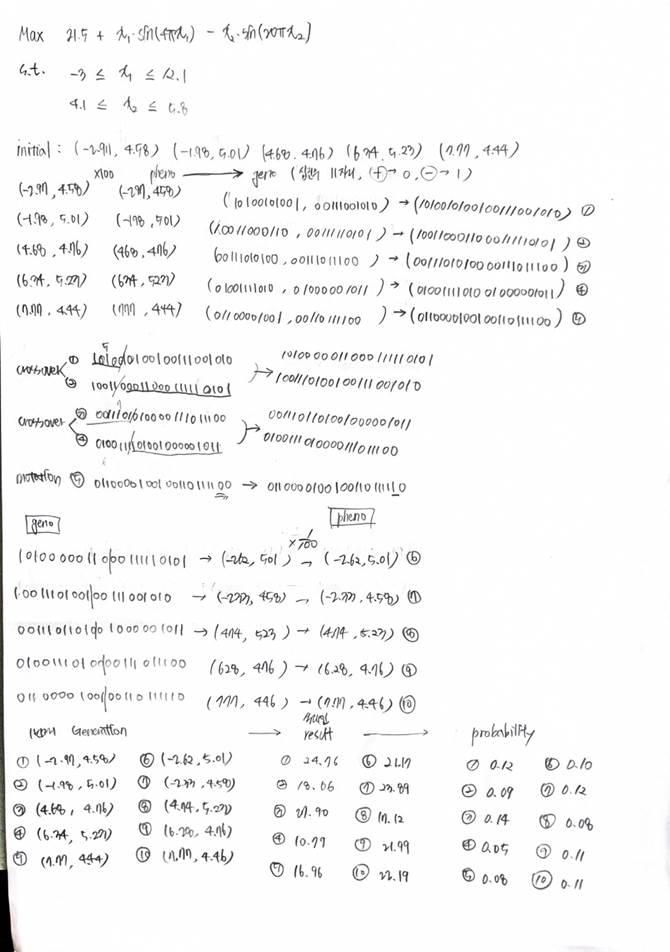 Max 21.5 + x₁·sin(4πx₁) - x₂·sin(20πx₂)
s.t. -3 ≤ x₁ ≤ 12.1
4.1 ≤ x₂ ≤ 5.8
initial : (-2.97, 4.58) (-1.98, 5.01) (4.68, 4.76) (6.74, 5.23) (7.77, 4.44)
×100 pheno → geno ( 11자리, ⊕→0, ⊖→1)
(-2.97, 4.58) (-297, 458) (10100101001, 00111001010) → (1010010100100111001010) ①
(-1.98, 5.01) (-198, 501) (10011000110, 00111110101) → (1001100011000111110101) ②
(4.68, 4.76) (468, 476) (00111010100, 00111011100) → (0011101010000111011100) ③
(6.74, 5.27) (674, 527) (01001111010, 01000001011) → (0100111101001000001011) ④
(7.77, 4.44) (777, 444) (01100001001, 00110111100) → (0110000100100110111100) ⑤
crossover ① 1010010100100111001010 → 1010000011000111110101
② 1001100011000111110101 → 1001110100100111001010
crossover ③ 0011101010000111011100 → 0011101101001000001011
④ 0100111101001000001011 → 0100111010000111011100
mutation ⑤ 0110000100100110111100 → 0110000100100110111110
geno pheno
×1/100
1010000011000111110101 → (-262, 501) → (-2.62, 5.01) ⑥
1001110100100111001010 → (-233, 458) → (-2.33, 4.58) ⑦
0011101101001000001011 → (474, 523) → (4.74, 5.23) ⑧
0100111010000111011100 (628, 476) → (6.28, 4.76) ⑨
0110000100100110111110 (777, 446) → (7.77, 4.46) ⑩
Generation → result → probability
① (-2.97, 4.58) ⑥ (-2.62, 5.01) ① 24.76 ⑥ 21.17 ① 0.12 ⑥ 0.10
② (-1.98, 5.01) ⑦ (-2.33, 4.58) ② 18.06 ⑦ 23.89 ② 0.09 ⑦ 0.12
③ (4.68, 4.76) ⑧ (4.74, 5.23) ③ 27.90 ⑧ 17.12 ③ 0.14 ⑧ 0.08
④ (6.74, 5.27) ⑨ (6.28, 4.76) ④ 10.77 ⑨ 21.99 ④ 0.05 ⑨ 0.11
⑤ (7.77, 4.44) ⑩ (7.77, 4.46) ⑤ 16.96 ⑩ 22.19 ⑤ 0.08 ⑩ 0.11